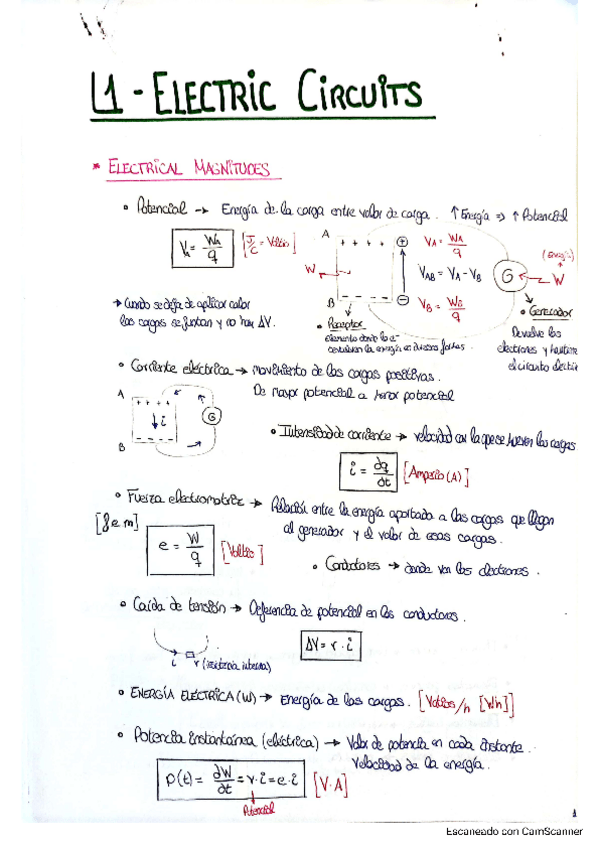 L1 - ELECTRIC CIRCUITS
* ELECTRICAL MAGNITUDES
• Potencial → Energía de la carga entre valor de carga. ↑ Energía => ↑ Potencial
V_A = W_A / q [J/C = Voltio]
A + + + + ⊕ V_A = W_A / q
W V_AB = V_A - V_B
B - - - - ⊖ V_B = W_B / q
G W
→ Cuando se deja de aplicar calor
las cargas se juntan y no hay ΔV.
• Receptor
elemento donde los e⁻
la energía en diversas formas.
• Generador
Devuelve los
electrones y
el circuito
• Corriente eléctrica → movimiento de las cargas positivas.
De mayor potencial a menor potencial
A + + + + ↓ i G
B - - - -
• Intensidad de corriente → velocidad con la que se mueven las cargas
i = dq / dt [Amperio (A)]
• Fuerza electromotriz → Relación entre la energía aportada a las cargas que llegan
al generador y el valor de esas cargas.
[f e m]
e = W / q [Voltio]
• Conductores → donde van los electrones.
• Caída de tensión → Diferencia de potencial en los conductores.
i r (resistencia interna)
ΔV = r · i
• ENERGÍA ELÉCTRICA (W) → Energía de las cargas. [Voltios/h [Wh]]
• Potencia instantánea (eléctrica) → Valor de potencia en cada instante.
Velocidad de la energía.
P(t) = dW / dt = v · i = e · i [V·A]
Potencial
1
Escaneado con CamScanner